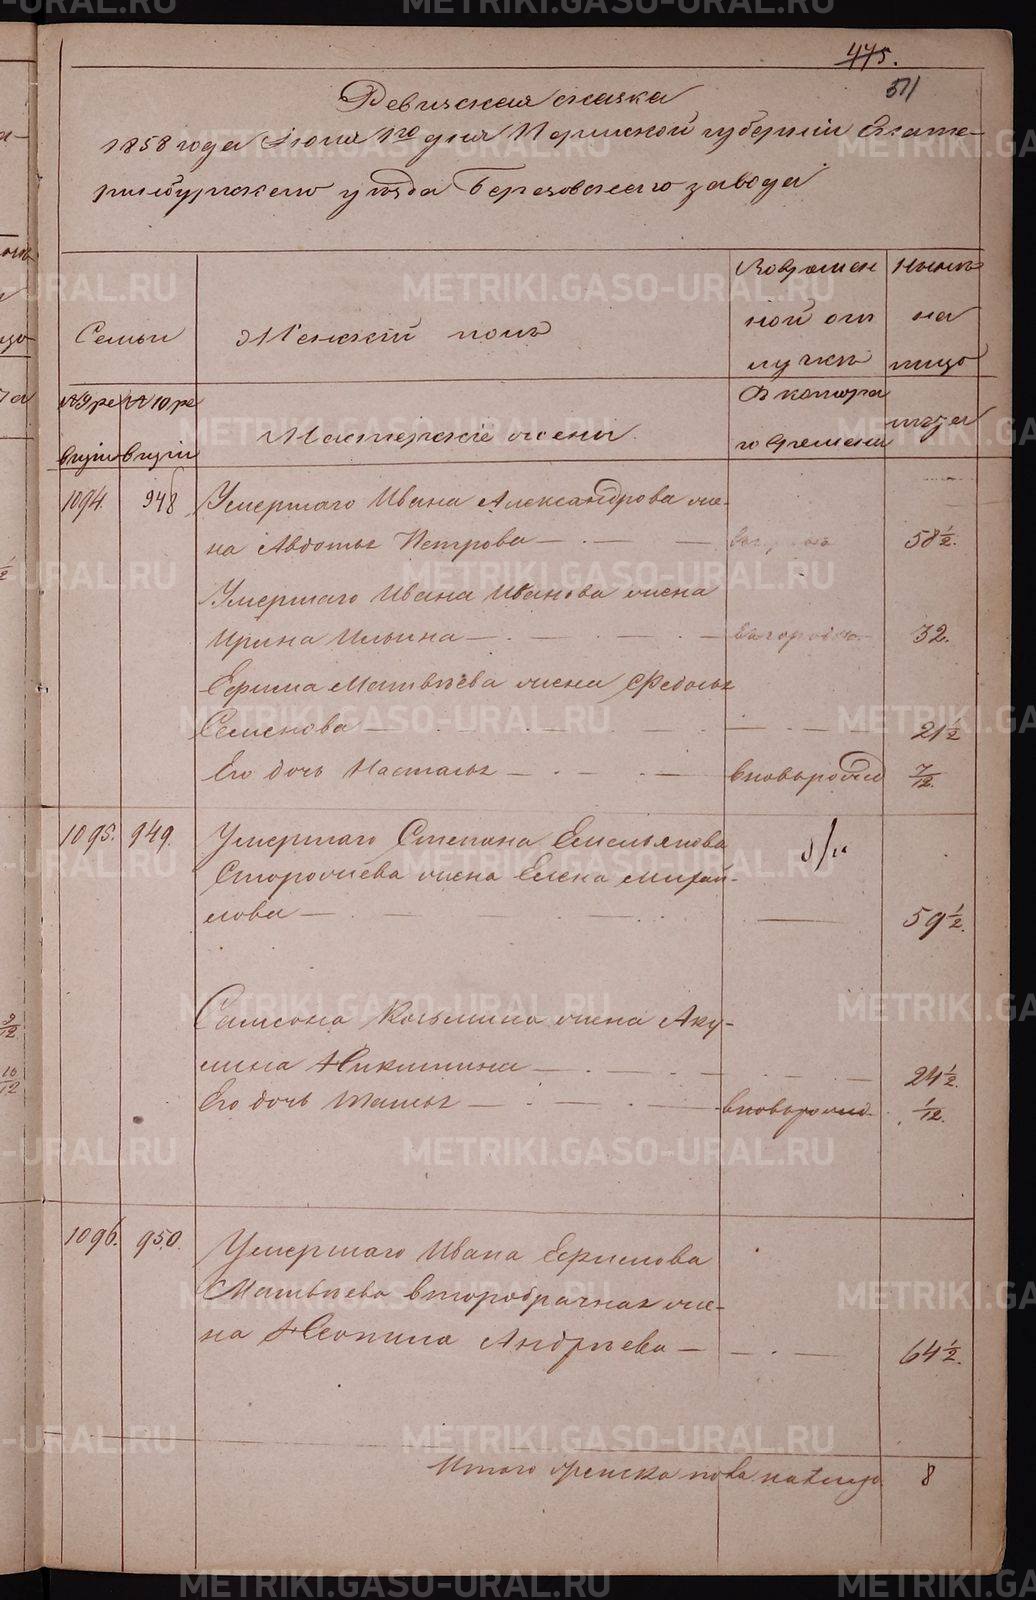 475.
511
Ревизская сказка
1858 года Июня 1го дня Пермской губернии Екате-
ринбургскаго уезда Березовскаго завода
Семьи
Женский полъ
Во времен
ной от
лучке
Ныне
на
лицо
№ 9 ре
визiи
№ 10 ре
визiи
Мастерскiе жены
В котора
го времени
лета
1094. 948 Умершаго Ивана Александрова же-
на Авдотья Петрова — 58 1/2.
Умершаго Ивана Иванова жена
Ирина Ильина — 32.
Ефима Матвѣева жена Федосья
Семенова — 21 1/2
Его дочь Наталья — вновьрожд 7/12.
1095. 949. Умершаго Степана Емельянова
Сторожева жена Елена Михай-
лова — 59 1/2.
Самсона Козьмина жена Аку-
лина Никитина — 24 1/2.
Его дочь — вновьрожд. 1/12.
1096. 950. Умершаго Ивана Ефимова
Матвѣева второбрачная же-
на Неонила Андрѣева — 64 1/2.
Итого женска пола на лицо 8
METRIKI.GASO-URAL.RU